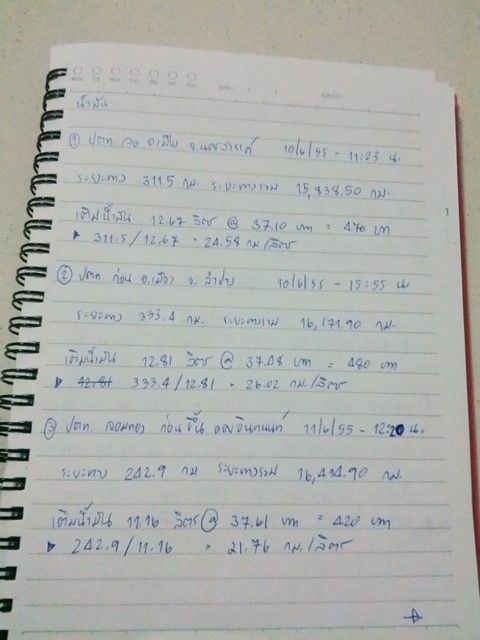 น้ำมัน
① ปตท. เลย อ.เมือง จ.นครสวรรค์ 10/6/55 - 11:23 น.
ระยะทาง 311.5 กม. ระยะทางรวม 15,838.50 กม.
เติมน้ำมัน 12.67 ลิตร @ 37.10 บาท = 470 บาท
▶ 311.5/12.67 = 24.58 กม./ลิตร
② ปตท ก่อน อ.เมือง จ. ลำปาง 10/6/55 - 15:55 น.
ระยะทาง 333.4 กม. ระยะทางรวม 16,171.90 กม.
เติมน้ำมัน 12.81 ลิตร @ 37.48 บาท = 480 บาท
▶ 333.4/12.81 = 26.02 กม./ลิตร
③ ปตท. จอมทอง ก่อนขึ้น ดอยอินทนนท์ 11/6/55 - 12:20 น.
ระยะทาง 242.9 กม ระยะทางรวม 16,414.90 กม.
เติมน้ำมัน 11.16 ลิตร @ 37.61 บาท = 420 บาท
▶ 242.9/11.16 = 21.76 กม./ลิตร